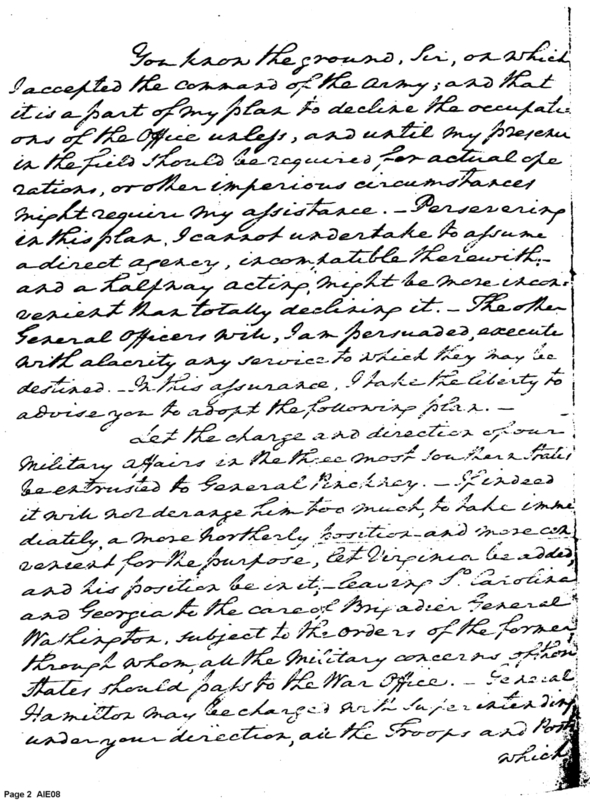 You know the ground, Sir, on which
I accepted the command of the Army; and that
it is a part of my plan to decline the occupati
ons of the Office unless, and until my presence
in the field should be required for actual ope
rations, or other imperious circumstances
might require my assistance. – Persevering
in this plan, I cannot undertake to assume
a direct agency, incompatible therewith, –
and a halfway acting, might be more incon-
venient than totally declining it. – The other
General Officers will, I am persuaded, execute
with alacrity any service to which they may be
destined. – In this assurance, I take the liberty to
advise you to adopt the following plan. –
Let the charge and direction of our
Military affairs in the three most southern States
be entrusted to General Pinckney. – If indeed
it will not derange him too much, to take imme
diately, a more Northerly position and more con
venient for the purpose, let Virginia be added,
and his position be in it, – leaving So. Carolina
and Georgia to the care of Brigadier General
Washington, subject to the orders of the former,
through whom, all the Military concerns of those
States should pass to the War Office. – General
Hamilton may be charged with Superintending
under your direction, all the Troops and Posts
which
Page 2 AIE08